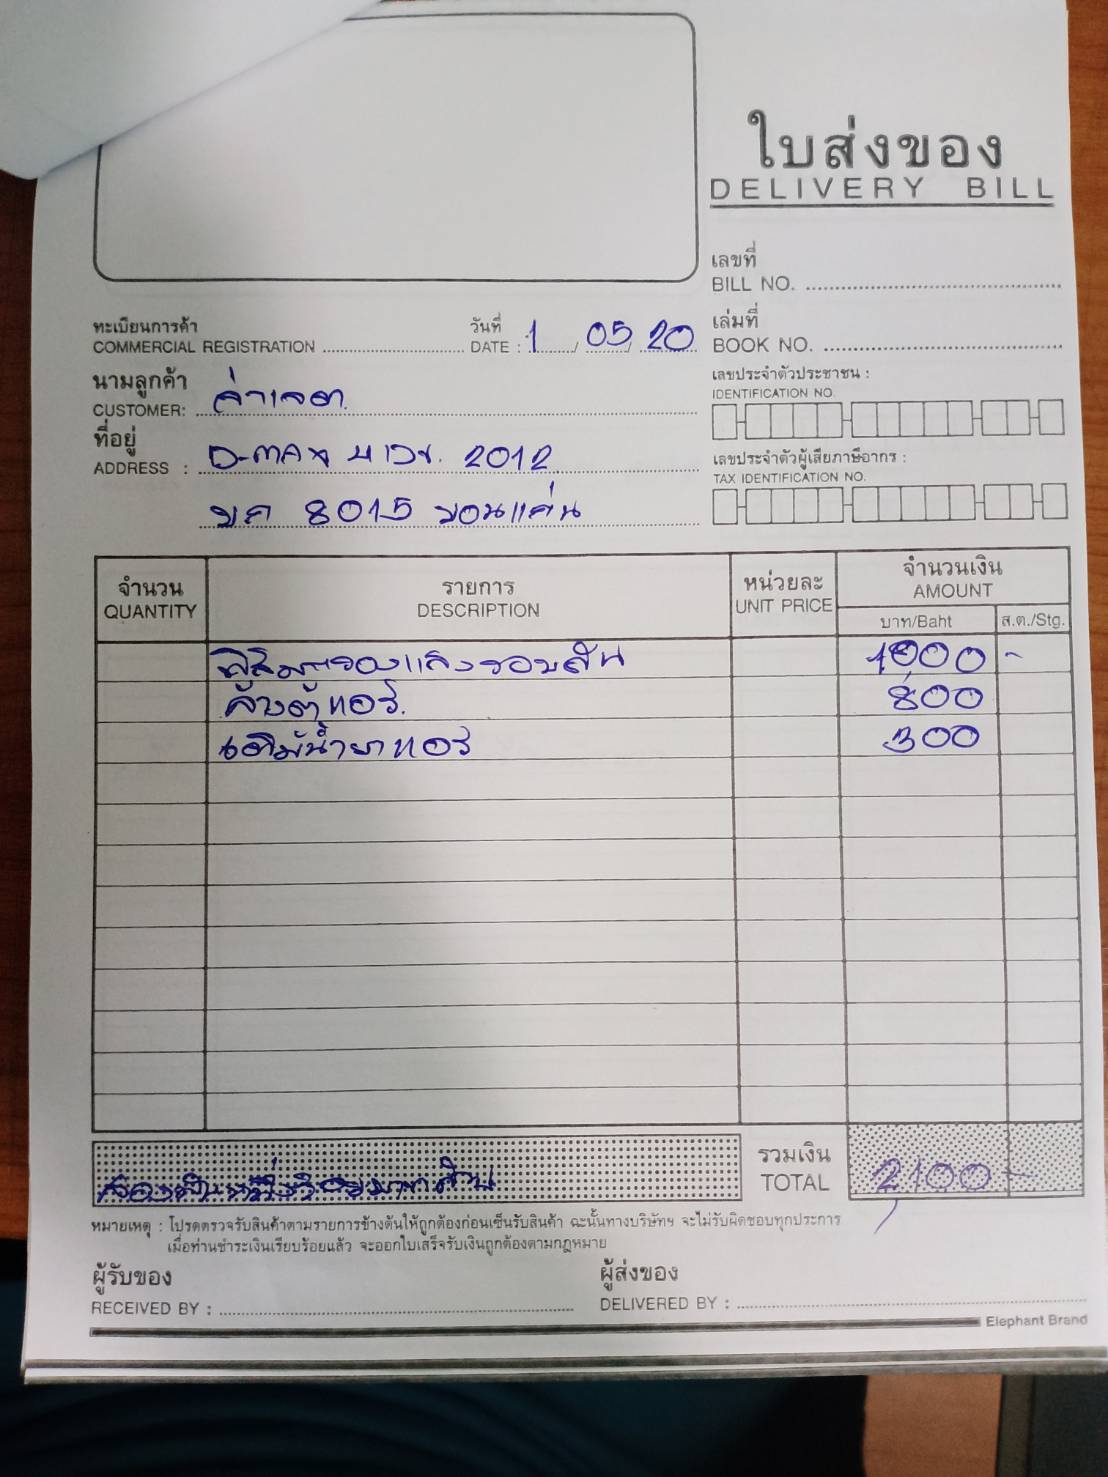 ใบส่งของ
DELIVERY BILL
เลขที่
BILL NO.
ทะเบียนการค้า
COMMERCIAL REGISTRATION
วันที่
DATE : 1 / 05 / 20
เล่มที่
BOOK NO.
นามลูกค้า
CUSTOMER:
เลขประจำตัวประชาชน :
IDENTIFICATION NO.
ที่อยู่
ADDRESS : D-max 2012
ขค 8015 ขอนแก่น
เลขประจำตัวผู้เสียภาษีอากร :
TAX IDENTIFICATION NO.
จำนวน รายการ หน่วยละ จำนวนเงิน
QUANTITY DESCRIPTION UNIT PRICE AMOUNT
บาท/Baht ส.ต./Stg.
1000 -
ล้างตู้แอร์. 800
เติมน้ำยาแอร์ 300
สองพันหนึ่งร้อยบาทถ้วน
รวมเงิน
TOTAL 2,100 -
หมายเหตุ : โปรดตรวจรับสินค้าตามรายการข้างต้นให้ถูกต้องก่อนเซ็นรับสินค้า ฉะนั้นทางบริษัทฯ จะไม่รับผิดชอบทุกประการ
เมื่อท่านชำระเงินเรียบร้อยแล้ว จะออกใบเสร็จรับเงินถูกต้องตามกฎหมาย
ผู้รับของ
RECEIVED BY :
ผู้ส่งของ
DELIVERED BY :
Elephant Brand